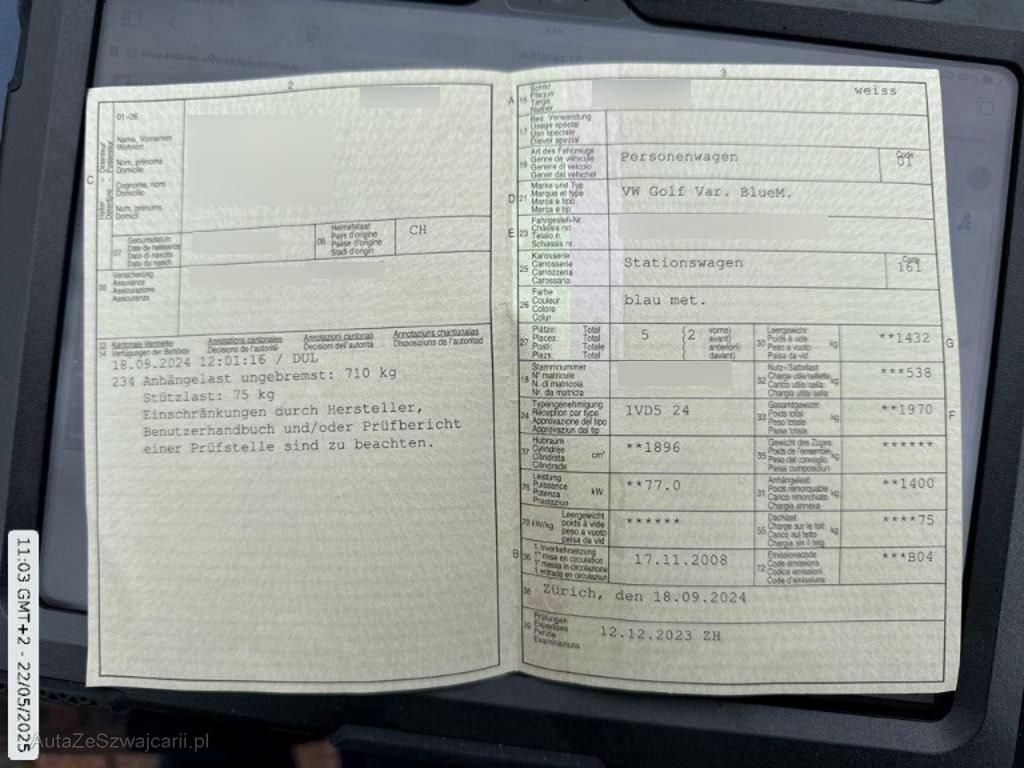 2
01-06
Name, Vornamen
Wohnort
Nom, prénoms
Domicile
Cognome, nomi
Domicilio
Num, prenums
Domicil
C
07
Geburtsdatum
Date de naissance
Data di nascita
Data da nasch.
08
Heimatstaat
Pays d'origine
Paese d'origine
Stadi d'origin
CH
09
Versicherung
Assurance
Assicurazione
Assicuranza
13
14
Kantonale Vermerke
Verfügungen der Behörde
Annotations cantonales
Décisions de l'autorité
Annotazioni cantonali
Decisioni dell'autorità
Annotaziuns chantunalas
Disposiziuns da l'autoritad
18.09.2024 12:01:16 / DUL
234 Anhängelast ungebremst: 710 kg
Stützlast: 75 kg
Einschränkungen durch Hersteller,
Benutzerhandbuch und/oder Prüfbericht
einer Prüfstelle sind zu beachten.
3
A 15
Schild
Plaque
Targa
Numer
weiss
17
Bes. Verwendung
Usage spécial
Uso speciale
Diever spezial
19
Art des Fahrzeugs
Genre de véhicule
Genere di veicolo
Gener dal vehichel
Personenwagen
Code
01
D 21
Marke und Typ
Marque et type
Marca e tipo
Marca e tip
VW Golf Var. BlueM.
E 23
Fahrgestell-Nr.
Châssis no
Telaio n.
Schassis nr.
25
Karosserie
Carrosserie
Carrozzeria
Carossaria
Stationswagen
Code
161
26
Farbe
Couleur
Colore
Colur
blau met.
27
Plätze: Total
Places: Total
Posti: Totale
Plazs: Total
5 (2
vorne)
avant)
anteriori)
davant)
30
Leergewicht
Poids à vide
Peso a vuoto
Paisa da vid
kg
**1432
G
18
Stammnummer
N° matricule
N. di matricola
Nr. da matricla
32
Nutz-/Sattellast
Charge utile/sellette
Carico utile/sella
Chargia utila/sella
kg
***538
24
Typengenehmigung
Réception par type
Approvazione del tipo
Approvaziun dal tip
1VD5 24
33
Gesamtgewicht
Poids total
Peso totale
Paisa totala
kg
**1970
F
37
Hubraum
Cylindrée
Cilindrata
Cilindrada
cm³
**1896
35
Gewicht des Zuges
Poids de l'ensemble
Peso del convoglio
Paisa cumposiziun
kg
******
76
Leistung
Puissance
Potenza
Prestaziun
kW
**77.0
31
Anhängelast
Poids remorquable
Carico rimorchiato
Chargia annexa
kg
**1400
78 kW/kg
Leergewicht
poids à vide
peso a vuoto
paisa da vid
******
55
Dachlast
Charge sur le toit
Carico sul tetto
Chargia sin il tetg
kg
****75
B 36
1. Inverkehrsetzung
1re mise en circulation
1a messa in circolazione
1. entrada en circulaziun
17.11.2008
72
Emissionscode
Code émissions
Codice emissioni
Code d'emissiuns
***B04
38
Zürich, den 18.09.2024
39
Prüfungen
Expertises
Perizie
Examinaziuns
12.12.2023 ZH
11:03 GMT+2 - 22/05/2025
AutaZeSzwajcarii.pl